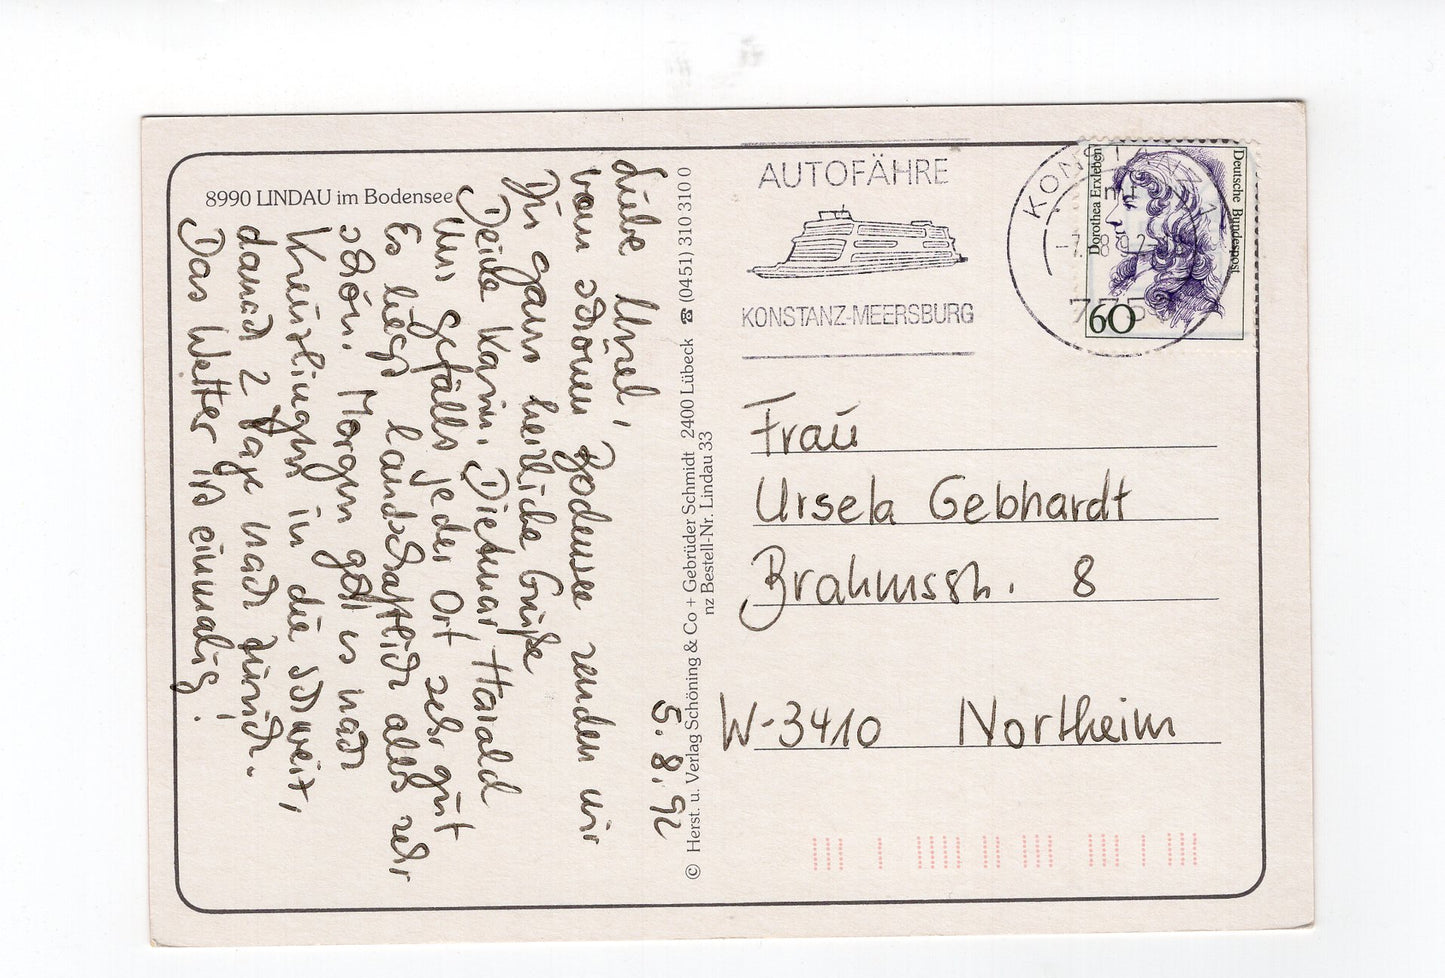 8990 LINDAU im Bodensee
5.8.92
Liebe Ursel,
vom schönen Bodensee senden wir
Dir ganz herzliche Grüße
Deine Karin, Dietmar, Harald
Uns gefällt jeder Ort sehr gut
Es liegt landschaftlich alles sehr
schön. Morgen geht es nach
Kreuzlingen in die Schweiz,
danach 2 Tage nach Zürich.
Das Wetter ist einmalig!
© Herst. u. Verlag Schöning & Co + Gebrüder Schmidt 2400 Lübeck ☎ (0451) 310 310 0
nz Bestell-Nr. Lindau 33
AUTOFÄHRE
KONSTANZ-MEERSBURG
KONSTANZ 1
-7.8.92
775
Dorothea Erxleben
Deutsche Bundespost
60
Frau
Ursela Gebhardt
Brahmsstr. 8
W-3410 Northeim